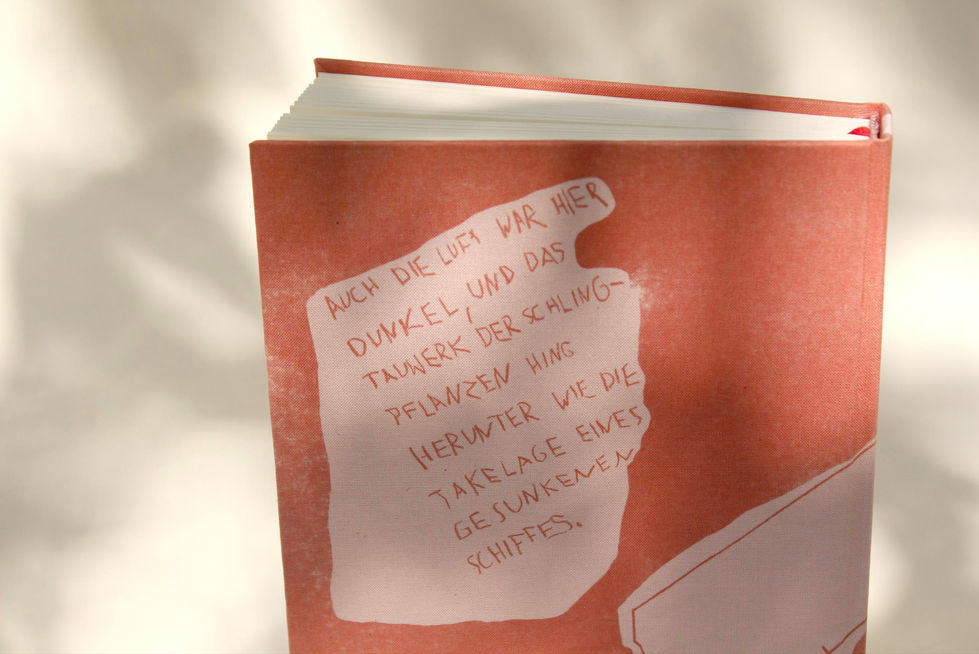 AUCH DIE LUFT WAR HIER
DUNKEL, UND DAS
TAUWERK DER SCHLING-
PFLANZEN HING
HERUNTER WIE DIE
TAKELAGE EINES
GESUNKENEN
SCHIFFES.